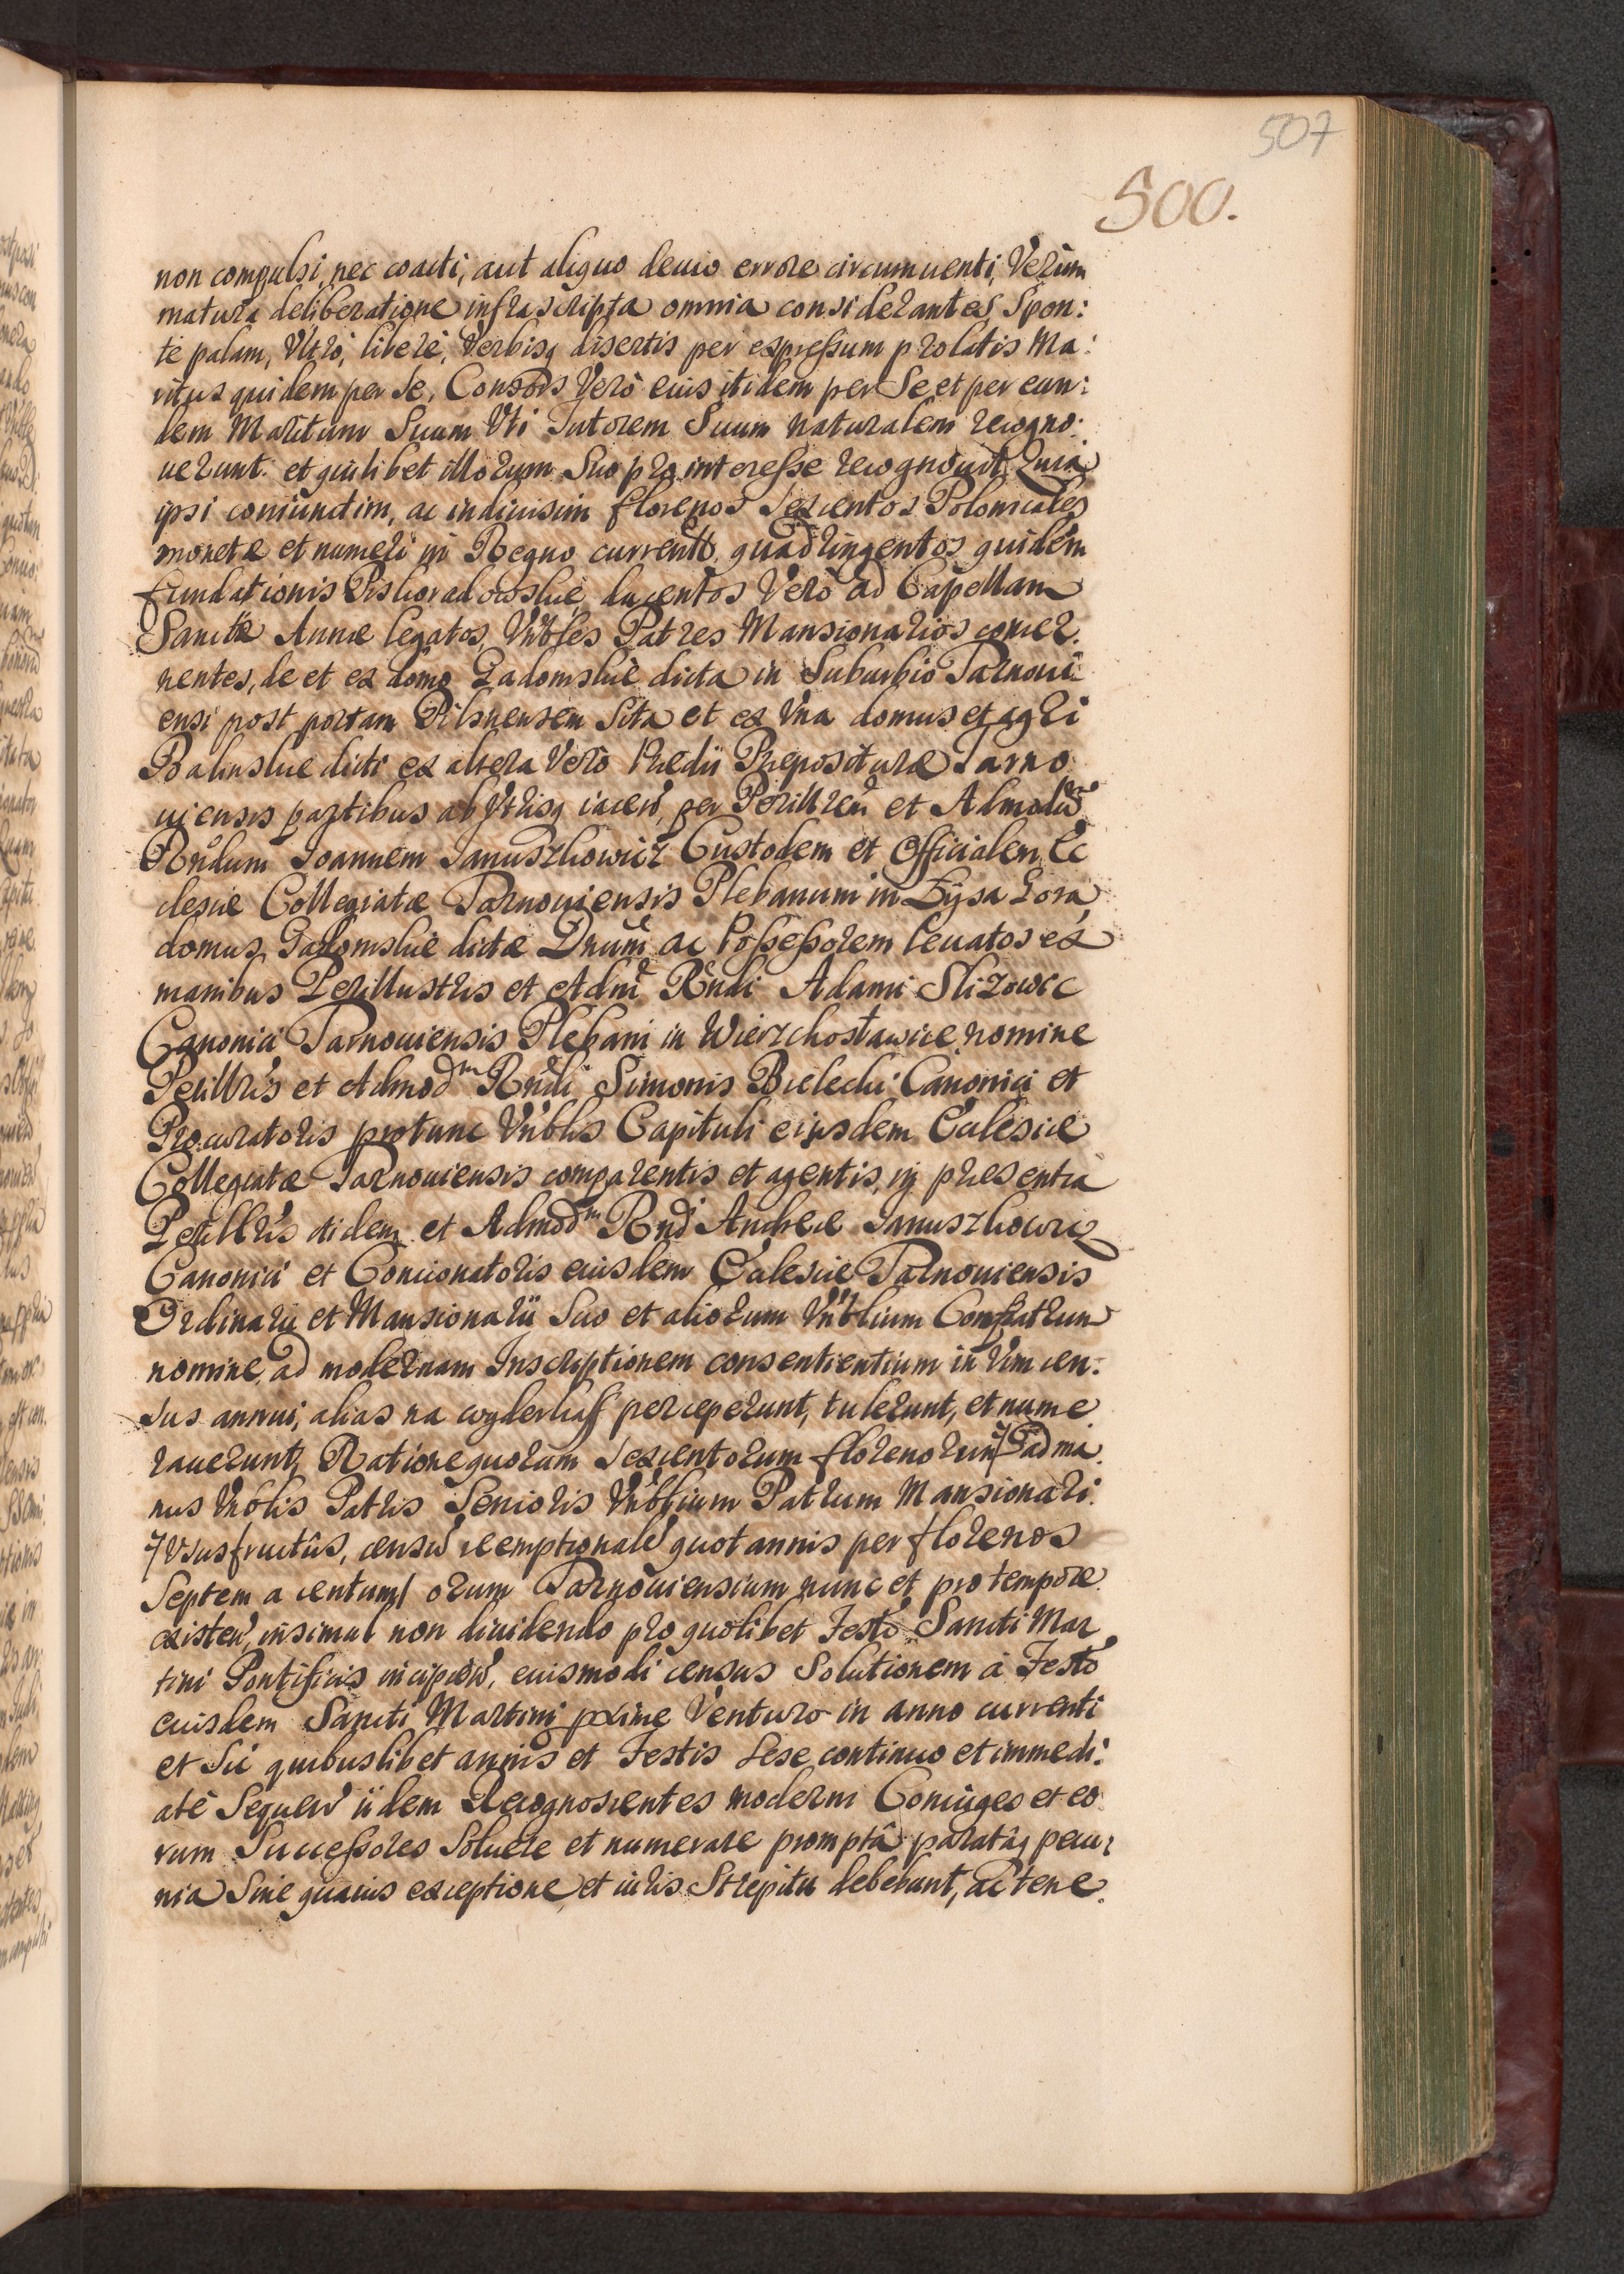 507
500.
non compulsi, nec coacti, aut aliquo deuio errore circumuenti, Verùm
matura deliberatione infrascripta omnia considerantes, Spon:
te palam, Vltrò, liberè, Verbisq disertis per expressum prolatis Ma:
ritus quidem per Se, Consors Verò eius itidem per Se et per eun:
dem Maritum Suum Vti Tutorem Suum naturalem recogno:
uerunt. et quilibet illorum Suo pro interesse recognouit. Quia
ipsi coniunctim, ac indiuisim florenos Sexcentos Polonicales
monetæ et numeri in Regno currentis quadringentos quidem
fundationis duCentos Verò ad Capellam
Sanctæ Annæ legatos, Vnbles Patres Mansionarios concer:
nentes, de et ex domo Radomskie dicta in Suburbio Tarnoui:
ensi post portam Pilsnensem Sita et ex Vna domus et agri
dicti ex altera Verò Prædii Præposituræ Tarno
uiensis partibus ab Vtrisq iacen, per Perillrem et Admodum
Rndum Ioannem Januszkowicz Custodem et Officialem Ec
clesiæ Collegiatæ Tarnouiensis Plebanum in Łysa Gora,
domus Radomskie dictæ Dnum ac Possessorem leuatos ex
manibus Perillustris et Adm Rndi Adami Slizowic
Canonici Tarnouiensis Plebani in Wierzchosławice nomine
Perillris et Admodm Rndi Simonis Bielecki Canonici et
Procuratoris protunc Vnblis Capituli eiusdem Ecclesiæ
Collegiatæ Tarnouiensis comparentis et agentis, in præsentia
Perillris itidem et Admodm Rndi Andreæ Januszkowicz
Canonici et Concionatoris eiusdem Ecclesiæ Tarnouiensis
Ordinarii et Mansionarii Suo et aliorum Vnblium Confratrum
nomine, ad modernam Inscriptionem consentientium in Vim cen:
sus annui, alias na wyderkaff perceperunt, tulerunt, et nume
rauerunt, Ratione quorum Sexcentorum florenorum 7 ad ma
nus Vnblis Patris Senioris Vnblium Patrum Mansionari
7 Vsusfructûs, censu reemptionale quot annis per florenos
Septem a centum/ orum Tarnouiensium nunc et pro tempore
existen, insimul non diuidendo pro quolibet Festo Sancti Mar
tini Pontificis incipien, euismodi census Solutionem à Festo
euisdem Sancti Martini pxime Venturo in anno currenti
et Sic quibuslibet annis et Festis Sese continuo et immedi:
atè Sequen iidem Recognoscentes moderni Coniuges et eo
rum Successores Soluere et numerare promptâ paratâq pecu:
nia Sine quauis exceptione, et iuris Strepitu debebunt, ac tene